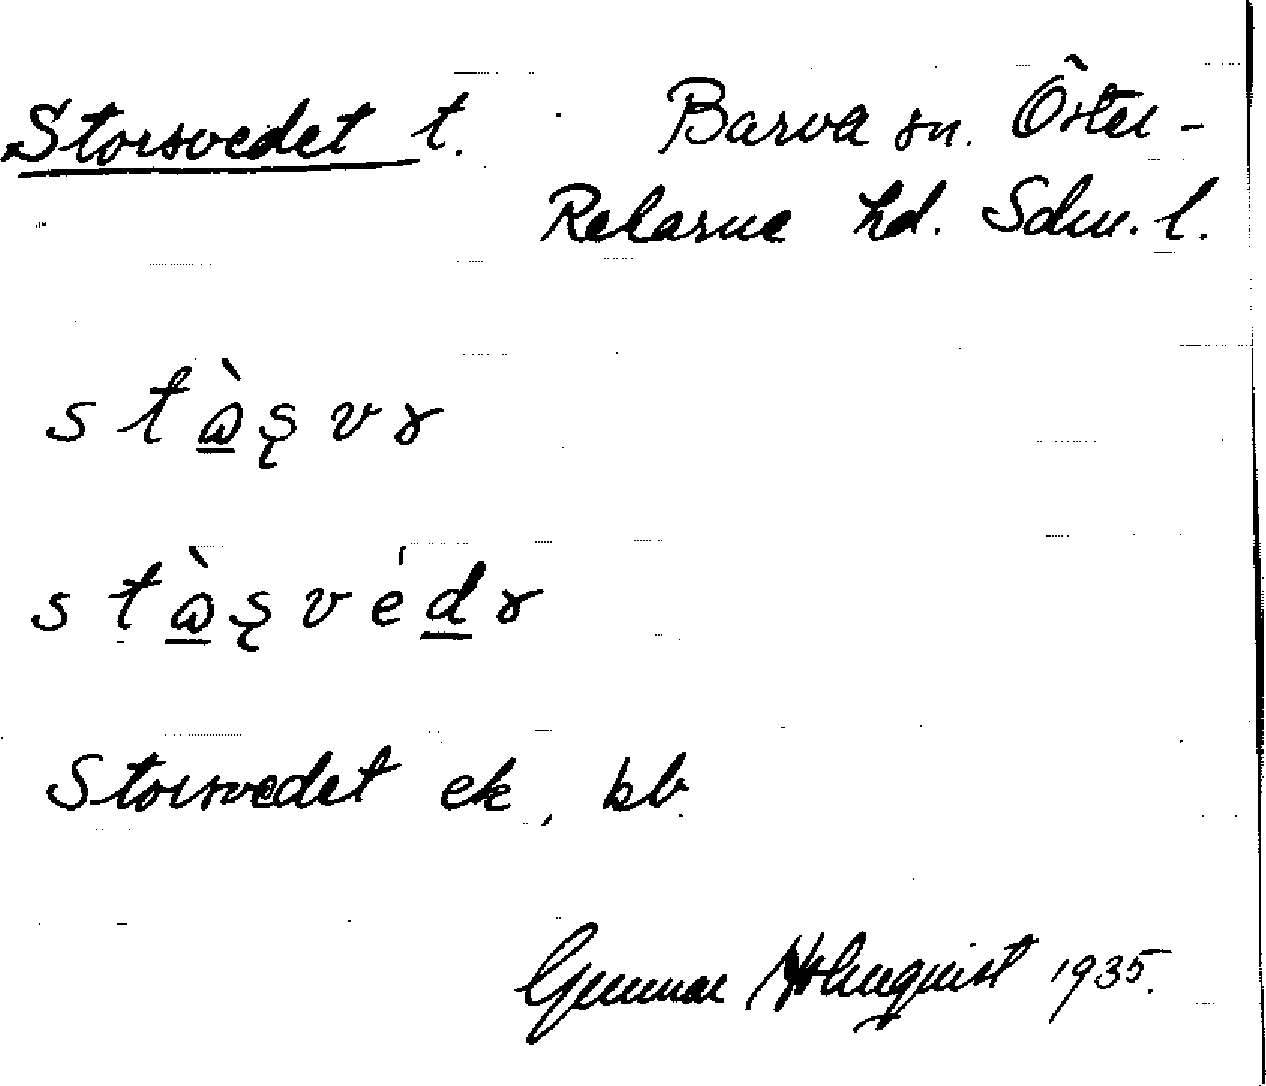 Storsvedet t. Barva sn. Öster-
Rekarne hd. Sdm. l.
stὼşvɤ
stὼşvédɤ
Storsvedet ek, kb.
Gunnar Holmquist 1935.